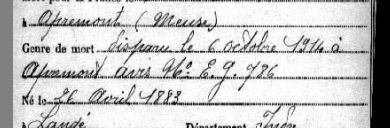 à Apremont (Meuse)
Genre de mort disparu le 6 octobre 1914 à
Apremont avis No E. G. 786
Né le 26 Avril 1883
à Département Isère